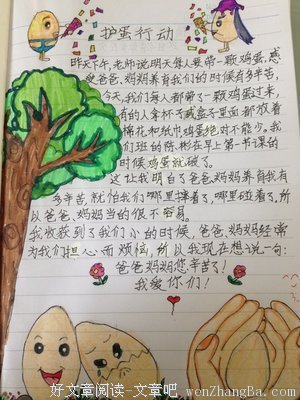 护蛋行动
昨天下午,老师说明天每人要带一颗鸡蛋,感
爸爸、妈妈养育我们的时候有多辛苦,
今天,我们每人都带了一颗鸡蛋过来,
有的人拿杯子或盒子里面都放着
棉花和纸巾鸡蛋绝对不能少。我
们班的陈彬在早上第一节课的
时候鸡蛋就破了。
这让我明白了爸爸妈妈养育我有
多辛苦,就怕我们哪里撞着了,哪里碰着了,所
以爸爸、妈妈当的很不容易。
我收获到了我们小的时候,爸爸、妈妈经常
为我们担心而烦恼,所以我现在想说一句:
爸爸妈妈您辛苦了!
我爱你们!
好文章阅读-文章吧 wenZhangBa.com